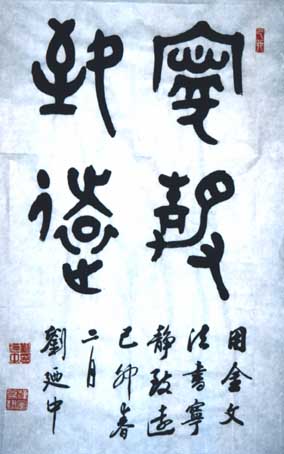 寧靜
致遠
用金文
法書寧
静致遠
己卯春
二月
劉迺中